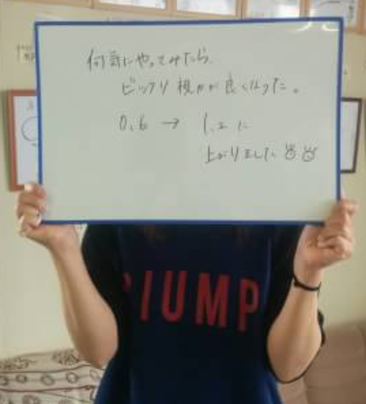 何気にやってみたら、
ビックリ視力が良くなった。
0.6 → 1.2 に
上がりました
IUMP